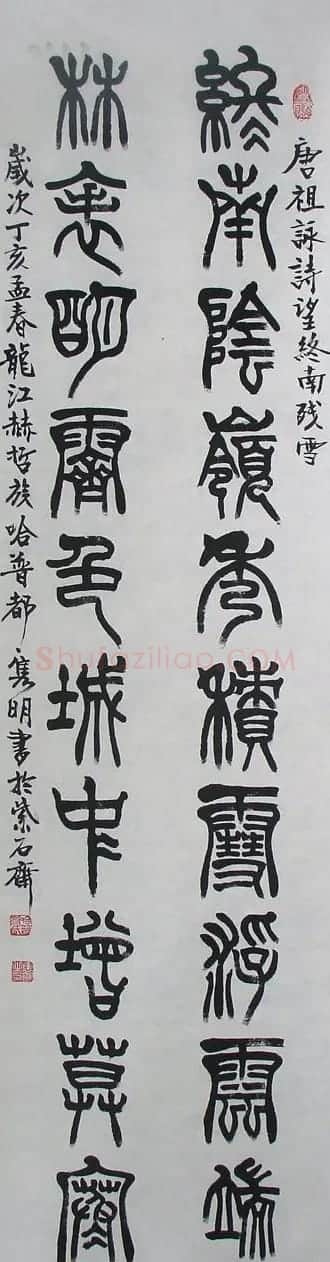 唐祖詠詩望終南殘雪
終南陰嶺秀積雪浮雲端
林表明霽色城中增莫寒
歲次丁亥孟春龍江赫哲族哈普都雋明書於紫石齋
Shufaziliao.COM